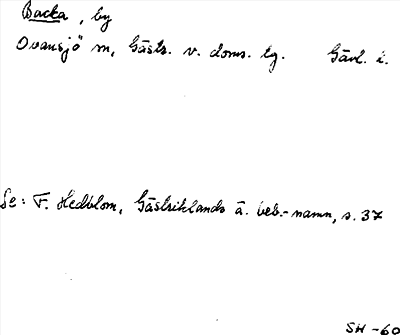 Backa, by
Ovansjö sn, Gästr. v. doms. tg. Gävl. l.
Se: F. Hedblom, Gästriklands ä. beb.-namn, s. 37
SH -60